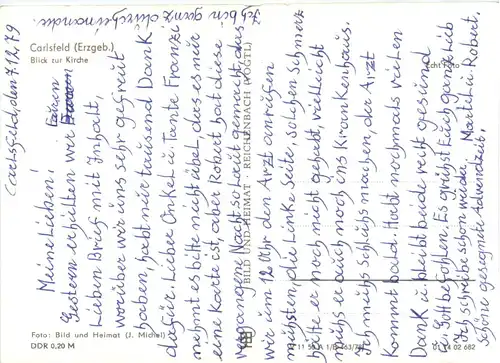 Carlsfeld (Erzgeb.)
Blick zur Kirche
Echt Foto
Carlsfeld, den 7.12.79
Meine Lieben!
Gestern erhielten wir Euren
Lieben Brief mit Inhalt,
worüber wir uns sehr gefreut
haben, habt nur tausend Dank
dafür. Lieber Onkel u. Tante Franzi
nehmt es bitte nicht übel, dass es nur
eine Karte ist, aber Robert hat diese
vergangene Nacht so laut gemacht, dass
wir um 12 Uhr den Arzt anrufen
mußten, die linke Seite, solchen Schmerz
hatte er noch nicht gehabt, vielleicht
muß er auch noch ins Krankenhaus.
Muß Schluß machen, der Arzt
kommt bald. Habt nochmals vielen
Dank u. bleibt beide recht gesund
Gottbefohlen. Es grüßt Euch ganz lieb
Ich schreibe schon wieder. Martel u. Robert.
Schöne gesegnete Adventszeit.
Ich bin ganz durcheinander.
BILD UND HEIMAT · REICHENBACH (VOGTL)
Foto: Bild und Heimat (J. Michel)
DDR 0,20 M
01 14 02 682